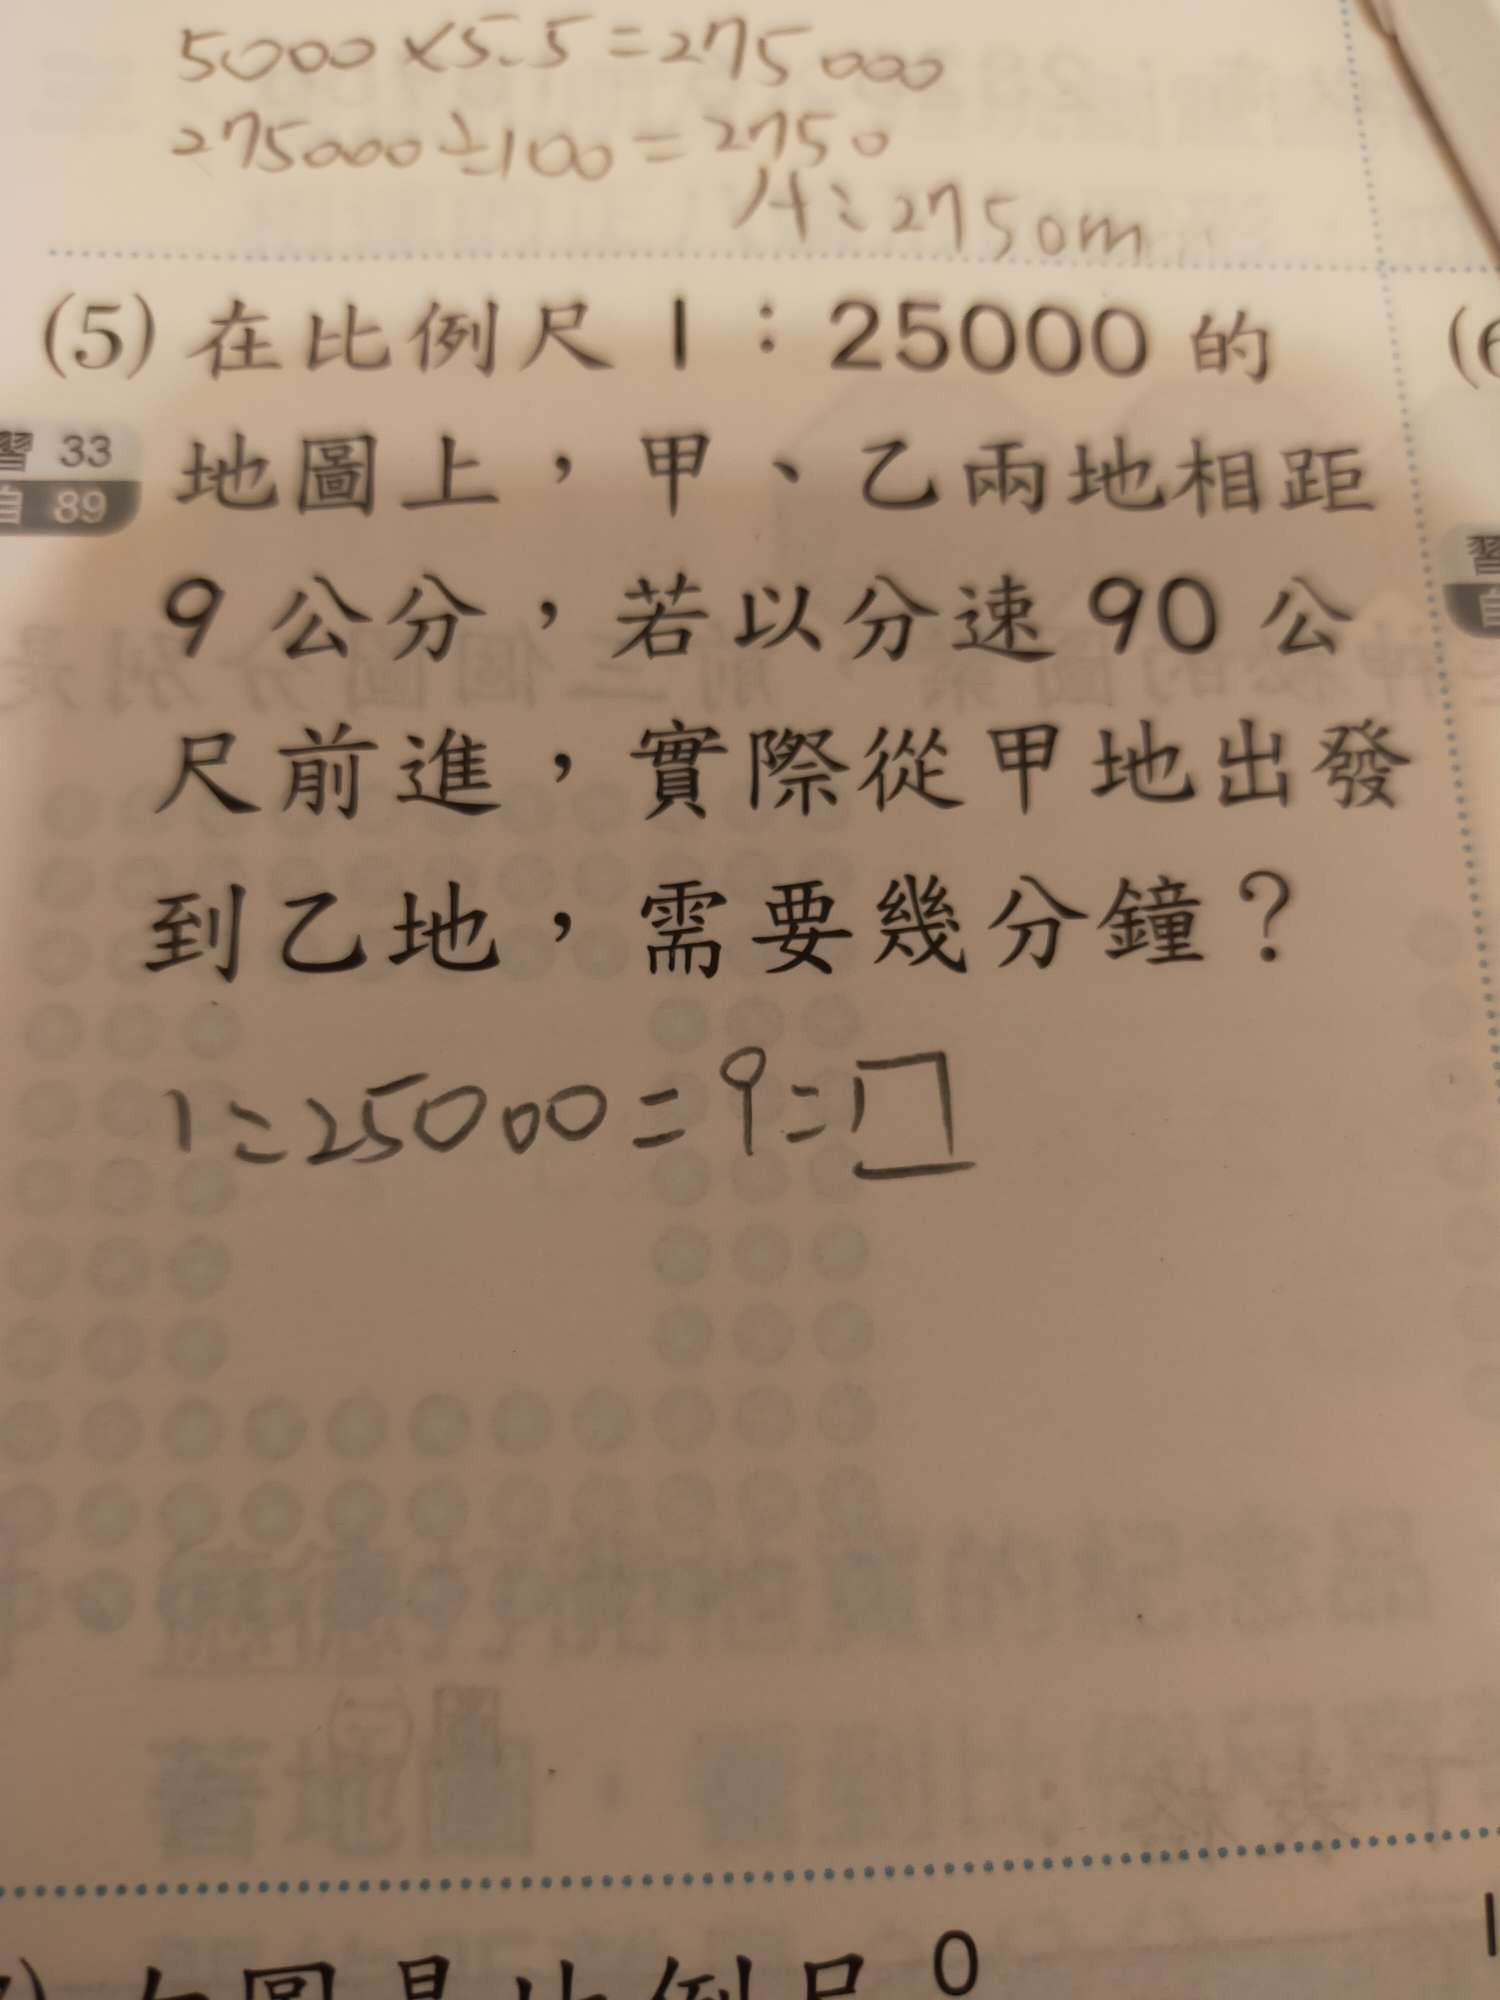 5000×5.5=275000
275000÷100=2750
A:2750m
(5) 在比例尺 1：25000 的
習 33
自 89
地圖上，甲、乙兩地相距
9 公分，若以分速 90 公
尺前進，實際從甲地出發
到乙地，需要幾分鐘？
1:25000=9:□
(6
習
自
0
比例尺
1